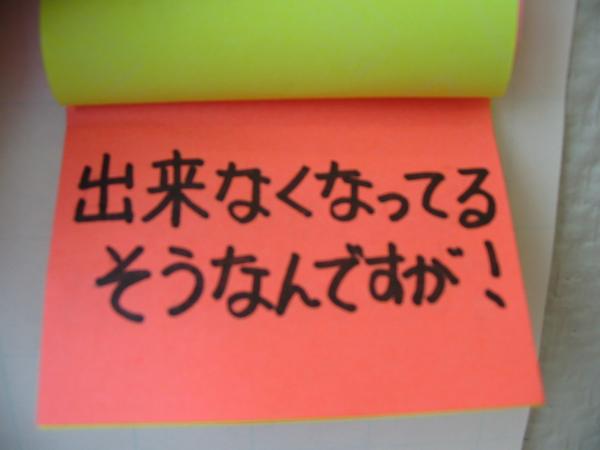 出来なくなってる
そうなんですが!